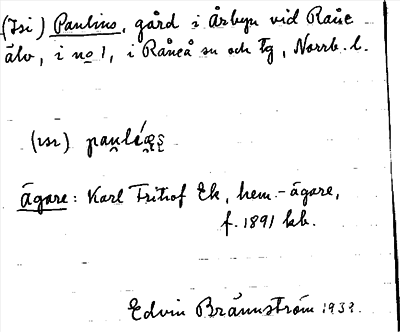 (Isi) Paulins, gård i Årbyn vid Råne
älv, i no 1, i Råneå sn och tg, Norrb. l.
(ɪsɪ)
ägare: Karl Fritiof Ek, hem.-ägare,
f. 1891 kb.
Edvin Brännström 1933.